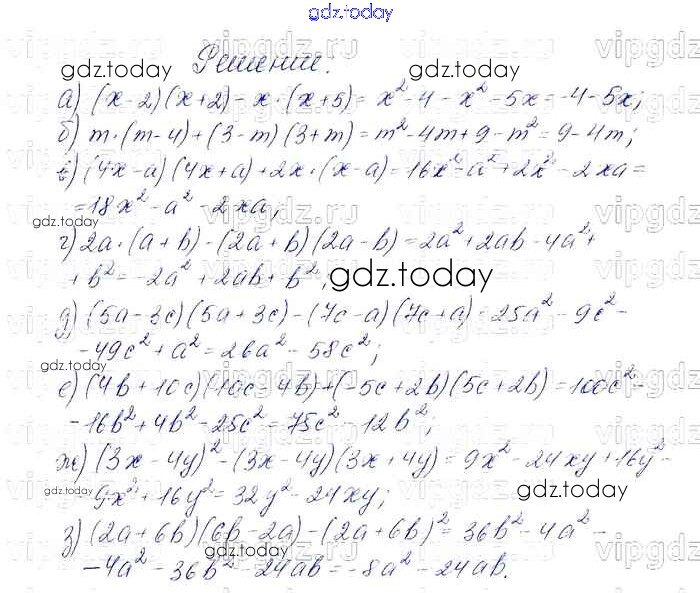 gdz.today
Решение.
gdz.today gdz.today
а) (x-2)(x+2) - x·(x+5) = x²-4-x²-5x=-4-5x;
б) m·(m-4)+(3-m)(3+m)=m²-4m+9-m²=9-4m;
в) (4x-a)(4x+a)+2x·(x-a)=16x²-a²+2x²-2xa=
=18x²-a²-2xa;
gdz.today
г) 2a·(a+b)-(2a+b)(2a-b)=2a²+2ab-4a²+
+b²=-2a²+2ab+b²;
gdz.today
д) (5a-3c)(5a+3c)-(7c-a)(7c+a)=25a²-9c²-
-49c²+a²=26a²-58c²;
gdz.today
е) (4b+10c)(10c-4b)+(-5c+2b)(5c+2b)=100c²-
-16b²+4b²-25c²=75c²-12b²;
ж) (3x-4y)²-(3x-4y)(3x+4y)=9x²-24xy+16y²-
-9x²+16y²=32y²-24xy;
gdz.today gdz.today
з) (2a+6b)(6b-2a)-(2a+6b)²=36b²-4a²-
gdz.today
-4a²-36b²-24ab=-8a²-24ab.
vipgdz.ru